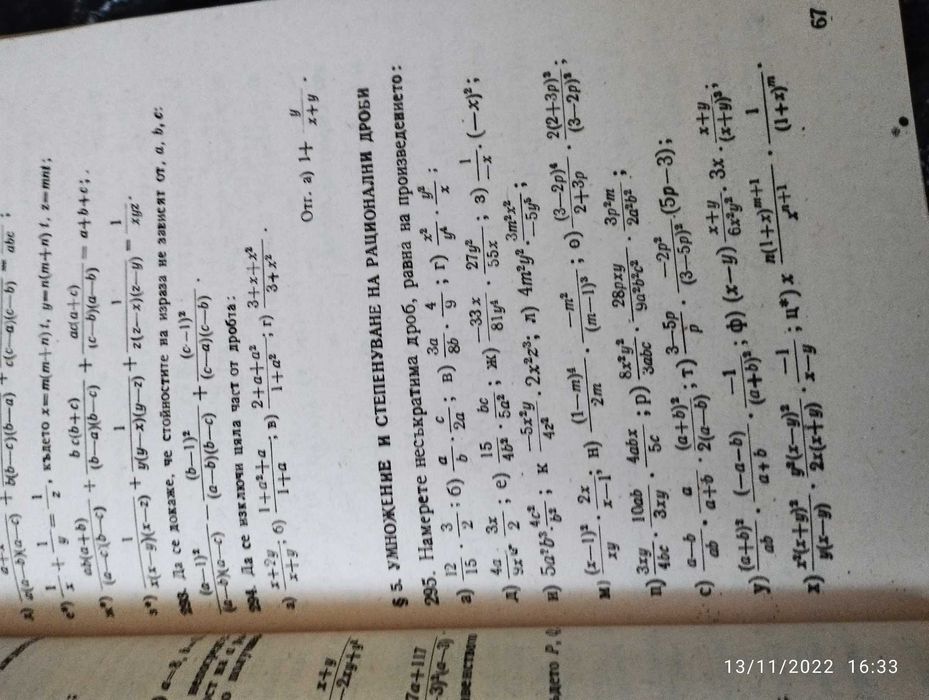 д) a(a—b)(a—c) + b(b—c)(b—a) + c(c—a)(c—b) = abc ;
е*) 1/x + 1/y = 1/z, където x=m(m+n) t, y=n(m+n) t, z=mnt;
ж*) ab(a+b)/(a—c)(b—c) + bc(b+c)/(b—a)(b—c) + ac(a+c)/(c—b)(a—b) = a+b+c;.
з*) 1/x(x—y)(x—z) + 1/y(y—x)(y—z) + 1/z(z—x)(z—y) = 1/xyz.
293. Да се докаже, че стойностите на израза не зависят от, a, b, c:
(a—1)²/(a—b)(a—c) — (b—1)²/(a—b)(b—c) + (c—1)²/(c—a)(c—b) .
294. Да се изключи цяла част от дробта:
а) x+2y/x+y ; б) 1+a²+a/1+a ; в) 2+a+a²/1+a² ; г) 3+x+x²/3+x² .
Отг. а) 1+ y/x+y .
§ 5. УМНОЖЕНИЕ И СТЕПЕНУВАНЕ НА РАЦИОНАЛНИ ДРОБИ
295. Намерете несъкратима дроб, равна на произведението:
а) 12/15 · 3/2 ; б) a/b · c/2a ; в) 3a/8b · 4/9 ; г) x²/y⁴ · y²/x ;
д) 4a/9x · 3x/2 ; е) 15/4b³ · bc/5a² ; ж) —33x/81y⁴ · 27y²/55x ; з) 1/—x · (—x)² ;
и) 5a²b³ · 4c²/b² ; к —5x²y/4z² · 2x²z³ ; л) 4m²y² · 3m²x²/—5y⁵ ;
м) (x—1)²/xy · 2x/x—1 ; н) (1—m)⁴/2m · —m²/(m—1)³ ; о) (3—2p)⁴/2+3p · 2(2+3p)²/(3—2p)³ ;
п) 3xy/4bc · 10ab/3xy · 4abx/5c ; р) 8x²y²/3abc · 28pxy/9a²b²c² · 3p²m/2a²b² ;
с) a—b/ab · a/a+b · (a+b)²/2(a—b) ; т) 3—5p/p · —2p²/(3—5p)² (5p—3) ;
у) (a+b)²/ab · (—a—b)/a+b · —1/(a+b)² ; ф) (x—y) x+y/6x²y² · 3x · x+y/(x+y)³ ;
х) x²(x+y)²/y(x—y) · y²(x—y)²/2x(x+y) · —1/x—y ; ц*) x n(1+x)ᵐ⁺¹/xⁿ⁺¹ · 1/(1+x)ᵐ .
67
x+y
—2xy+y²
7a+117
венството
дето P, Q,
13/11/2022 16:33